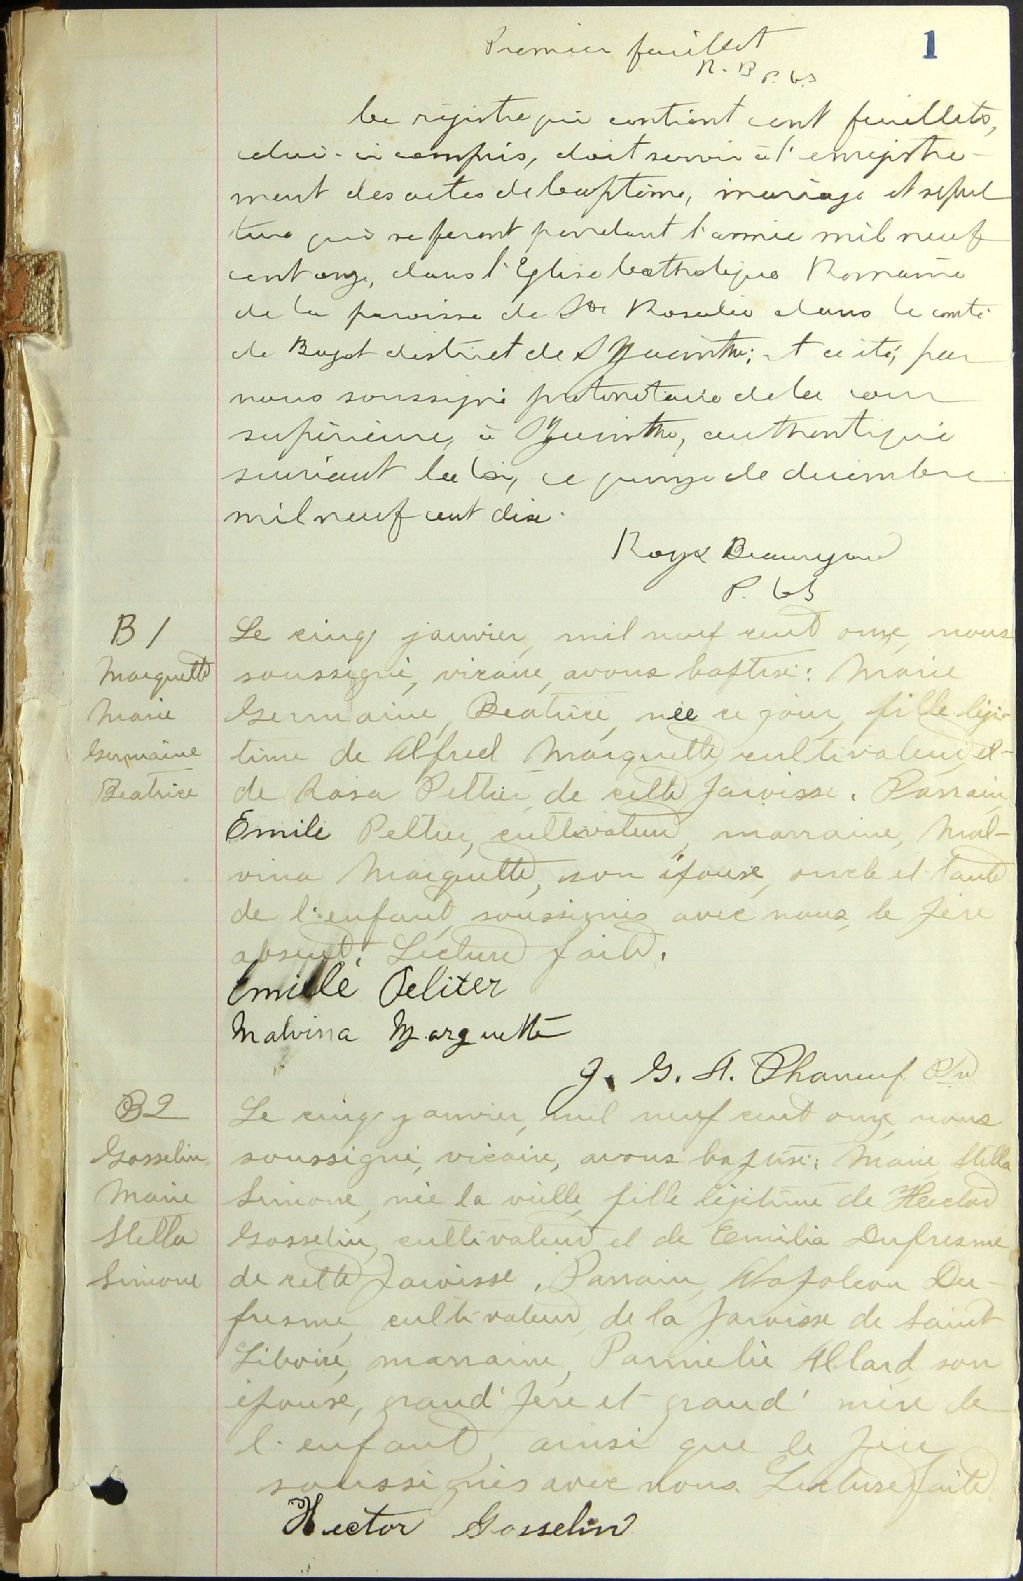 Premier feuillet
1
R. B P. C. S
Ce régistre qui contient cent feuillets,
celui-ci compris, doit servir à l'enregistre-
ment des actes de baptême, mariage et sépul
ture qui se feront pendant l'année mil neuf
cent onze, dans l'Eglise Catholique Romaine
de la paroisse de Ste Rosalie dans le comté
de Bagot district de St Hyacinthe; et a été, par
nous soussigné protonotaire de la cour
supérieure, à St Hyacinthe, authentiqué
suivant la loi, ce quinze de decembre
mil neuf cent dix.
Roy & Beauregard
P. C. S
B 1
Marquette
Marie
Germaine
Beatrice
Le cinq janvier, mil neuf cent onze, nous
soussigné, vicaire, avons baptisé: Marie
Germaine, Beatrice, née ce jour, fille légi-
time de Alfred Marquette cultivateur, et
de Rosa Peltier de cette paroisse. Parrain
Emile Peltier, cultivateur, marraine, Mal-
vina Marquette, son épouse, oncle et tante
de l'enfant, soussignés avec nous, le père
absent. Lecture faite.
Emile Peltier
Malvina Marquette
J. G. A. Phaneuf Ptre
B 2
Gosselin
Marie
Stella
Simone
Le cinq janvier, mil neuf cent onze, nous
soussigné, vicaire, avons baptisé: Marie Stella
Simone, née la veille, fille légitime de Hector
Gosselin, cultivateur et de Emilia Dufresne
de cette paroisse. Parrain, Napoleon Du-
fresne, cultivateur, de la paroisse de Saint
Liboire, marraine, Parmelie Allard, son
épouse, grand'père et grand'mère de
l'enfant, ainsi que le père
soussignés avec nous. Lecture faite
Hector Gosselin